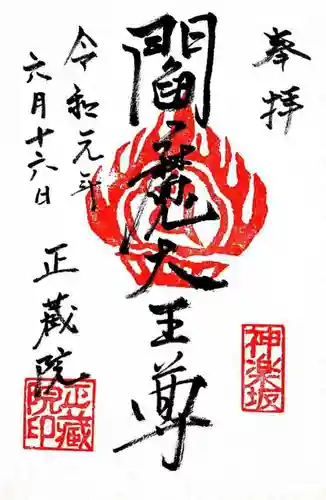 奉拝
閻魔大王尊
令和元年
六月十六日
正蔵院
神楽坂
正蔵院印